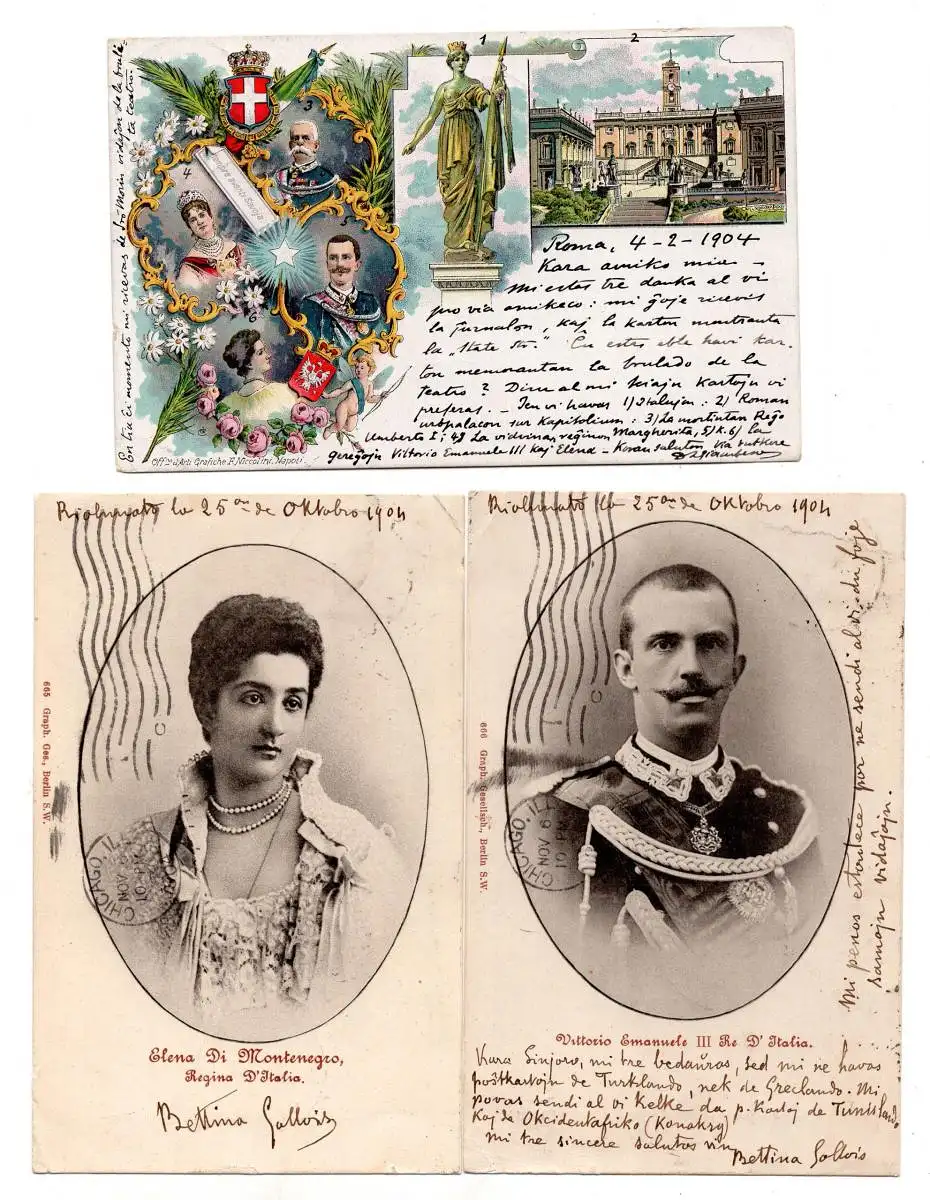 En tia ĉi momento mi ricevas de Sro Morin vidaĵon de la brulé-
ta teatro.
1
2
3
4
5
6
Sempre avanti Savoja
Roma, 4-2-1904
Kara amiko mia –
Mi estas tre danka al vi
pro via amikeco: mi ĝoje ricevis
la Jurnalon, kaj la karton montranta
la „State Str." Ĉu estas eble havi kar-
ton memorantan la brulado de la
teatro? Diru al mi kiajn kartojn vi
preferas. – Jen vi havas 1) Italujon: 2) Roman
urbpalacon sur Kapitolium: 3) La mortintan Reĝo
Umberto I; 4) La vidvinan reĝinon Margherita, 5) k. 6) la
gereĝojn Vittorio Emanuele III kaj Elena – Koran saluton Via sutkore
Off.na d'Arti Grafiche F. Niccolini, Napoli.
Ricevinato la 25an de Oktobro 1904
CHICAGO, ILL
NOV 6
10 PM
665 Graph. Ges., Berlin S.W.
Elena Di Montenegro,
Regina D'Italia.
Bettina Gallois
la 25an de Oktobro 1904
CHICAGO, ILL
NOV 6
10 PM
666 Graph. Gesellsch., Berlin S.W.
Mi penos estontece por ne sendi al vi du foje
samajn vidaĵojn.
Vittorio Emanuele III Re D'Italia.
Kara Sinjoro, mi tre bedaŭras, sed mi ne havas
poŝtkartojn de Turklando, nek de Greclando. Mi
povas sendi al vi kelke da p. kartoj de Tunislando
Kaj de Okcidentafriko (Konakry)
Mi tre sincere salutas vin
Bettina Gallois